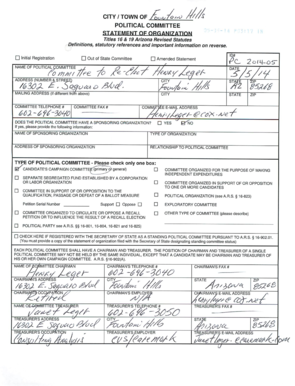 CITY / TOWN OF Fountain Hills
POLITICAL COMMITTEE
STATEMENT OF ORGANIZATION
Titles 16 & 19 Arizona Revised Statutes
Definitions, statutory references and important information on reverse.
Initial Registration Out of State Committee Amended Statement
PC 2014-05
NAME OF POLITICAL COMMITTEE DATE
Committee to Re-Elect Henry Leger 3/5/14
ADDRESS (NUMBER & STREET) CITY STATE ZIP
16302 E. Sequoia Blvd. Fountain Hills AZ 85268
MAILING ADDRESS (if different from above) CITY STATE ZIP
COMMITTEE TELEPHONE # COMMITTEE FAX # COMMITTEE E-MAIL ADDRESS
602-696-3040
DOES THE POLITICAL COMMITTEE HAVE A SPONSORING ORGANIZATION? YES NO
If yes, please provide the following information:
NAME OF SPONSORING ORGANIZATION TYPE OF ORGANIZATION
ADDRESS OF SPONSORING ORGANIZATION RELATIONSHIP TO POLITICAL COMMITTEE
TYPE OF POLITICAL COMMITTEE - Please check only one box:
CANDIDATE'S CAMPAIGN COMMITTEE (primary or general) COMMITTEE ORGANIZED FOR THE PURPOSE OF MAKING INDEPENDENT EXPENDITURES
SEPARATE SEGREGATED FUND ESTABLISHED BY A CORPORATION OR LABOR ORGANIZATION COMMITTEE ORGANIZED IN SUPPORT OF OR OPPOSITION TO ONE OR MORE CANDIDATES
COMMITTEE IN SUPPORT OF OR OPPOSITION TO THE QUALIFICATION, PASSAGE OR DEFEAT OF A BALLOT MEASURE POLITICAL ORGANIZATION
Petition Serial Number Support Oppose EXPLORATORY COMMITTEE
COMMITTEE ORGANIZED TO CIRCULATE OR OPPOSE A RECALL PETITION OR TO INFLUENCE THE RESULT OF A RECALL ELECTION OTHER TYPE OF COMMITTEE (please describe)
POLITICAL PARTY
CHECK HERE IF REGISTERING WITH THE SECRETARY OF STATE AS A STANDING POLITICAL COMMITTEE PURSUANT TO A.R.S.
EACH POLITICAL COMMITTEE SHALL HAVE A CHAIRMAN AND TREASURER. THE POSITION OF CHAIRMAN AND TREASURER OF A SINGLE POLITICAL COMMITTEE MAY NOT BE HELD BY THE SAME INDIVIDUAL, EXCEPT THAT A CANDIDATE MAY BE CHAIRMAN AND TREASURER OF HIS OR HER OWN CAMPAIGN COMMITTEE.
NAME OF COMMITTEE CHAIRMAN CHAIRMAN'S TELEPHONE # CHAIRMAN'S FAX #
Henry Leger 602-696-3040
CHAIRMAN'S ADDRESS CITY STATE ZIP
16302 E. Sequoia Blvd Fountain Hills Arizona 85268
CHAIRMAN'S OCCUPATION CHAIRMAN'S EMPLOYER CHAIRMAN'S E-MAIL ADDRESS
Retired N/A
NAME OF COMMITTEE TREASURER TREASURER'S TELEPHONE # TREASURER'S FAX #
Janet Leger 602-696-3050
TREASURER'S ADDRESS CITY STATE ZIP
16302 E. Sequoia Blvd Fountain Hills Arizona 85268
TREASURER'S OCCUPATION TREASURER'S EMPLOYER TREASURER'S E-MAIL ADDRESS
Consulting Analyst CVS Caremark